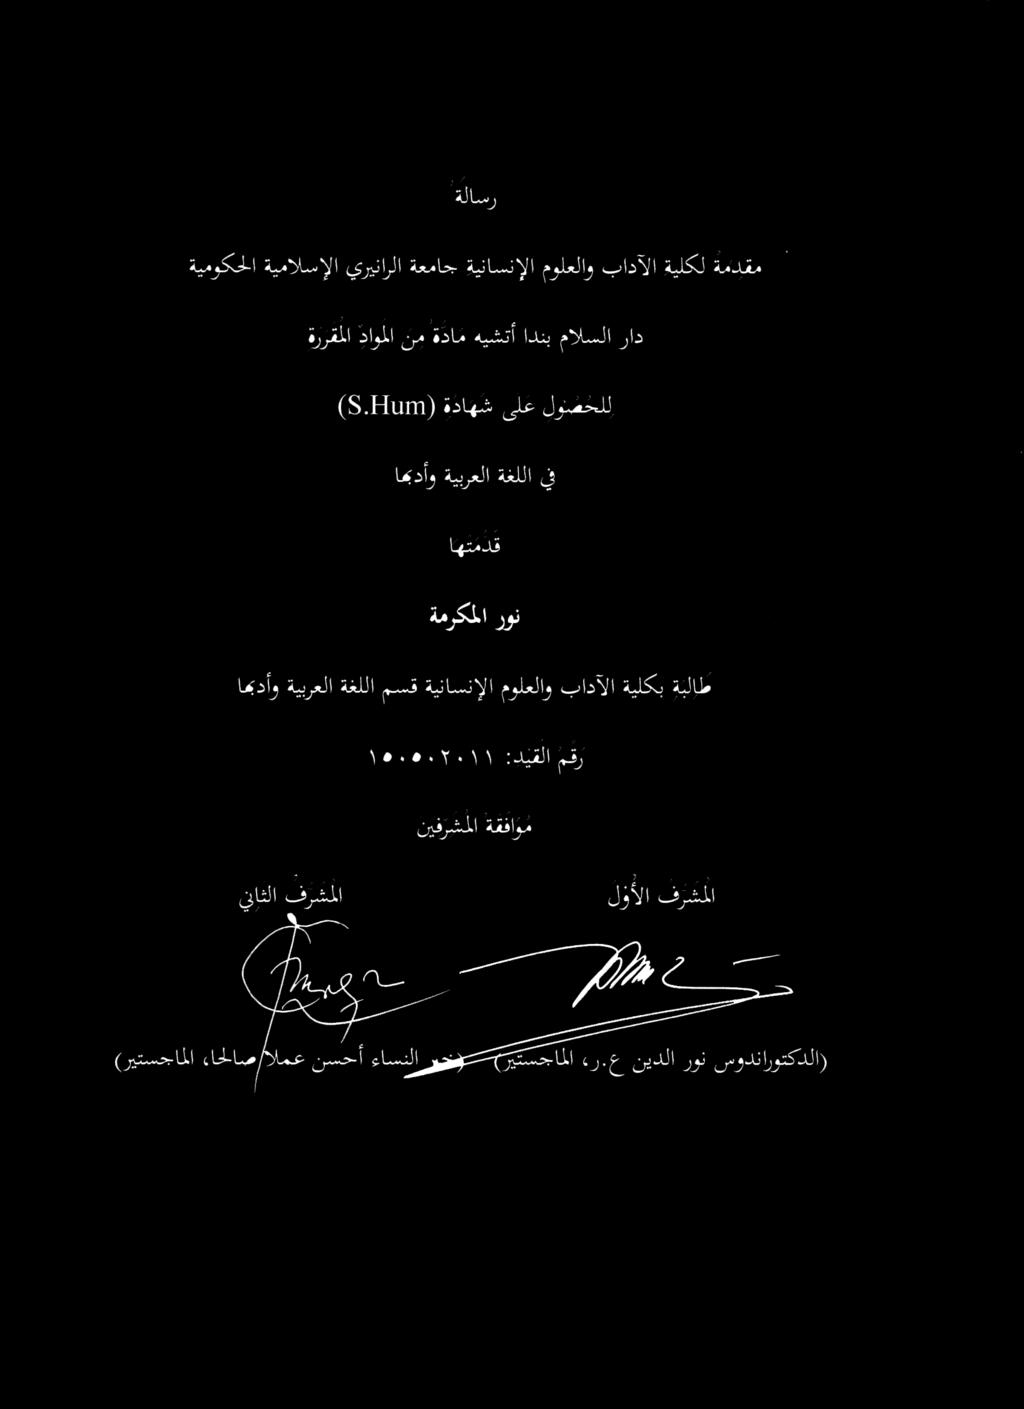 رسالة
مقدمة لكلية الآداب والعلوم الإنسانية جامعة الرانيري الإسلامية الحكومية
دار السلام بندا أتشيه مادة من المواد المقررة
للحصول على شهادة (S.Hum)
في اللغة العربية وأدبها
قدمتها
نور المكرمة
طالبة بكلية الآداب والعلوم الإنسانية قسم اللغة العربية وأدبها
رقم القيد: ١٥٠٥٠٢٠١١
موافقة المشرفين
المشرف الأول
المشرف الثاني
(الدكتوراندوس نور الدين ع.ر، الماجستير)
(خير النساء أحسن عملا صالحا، الماجستير)